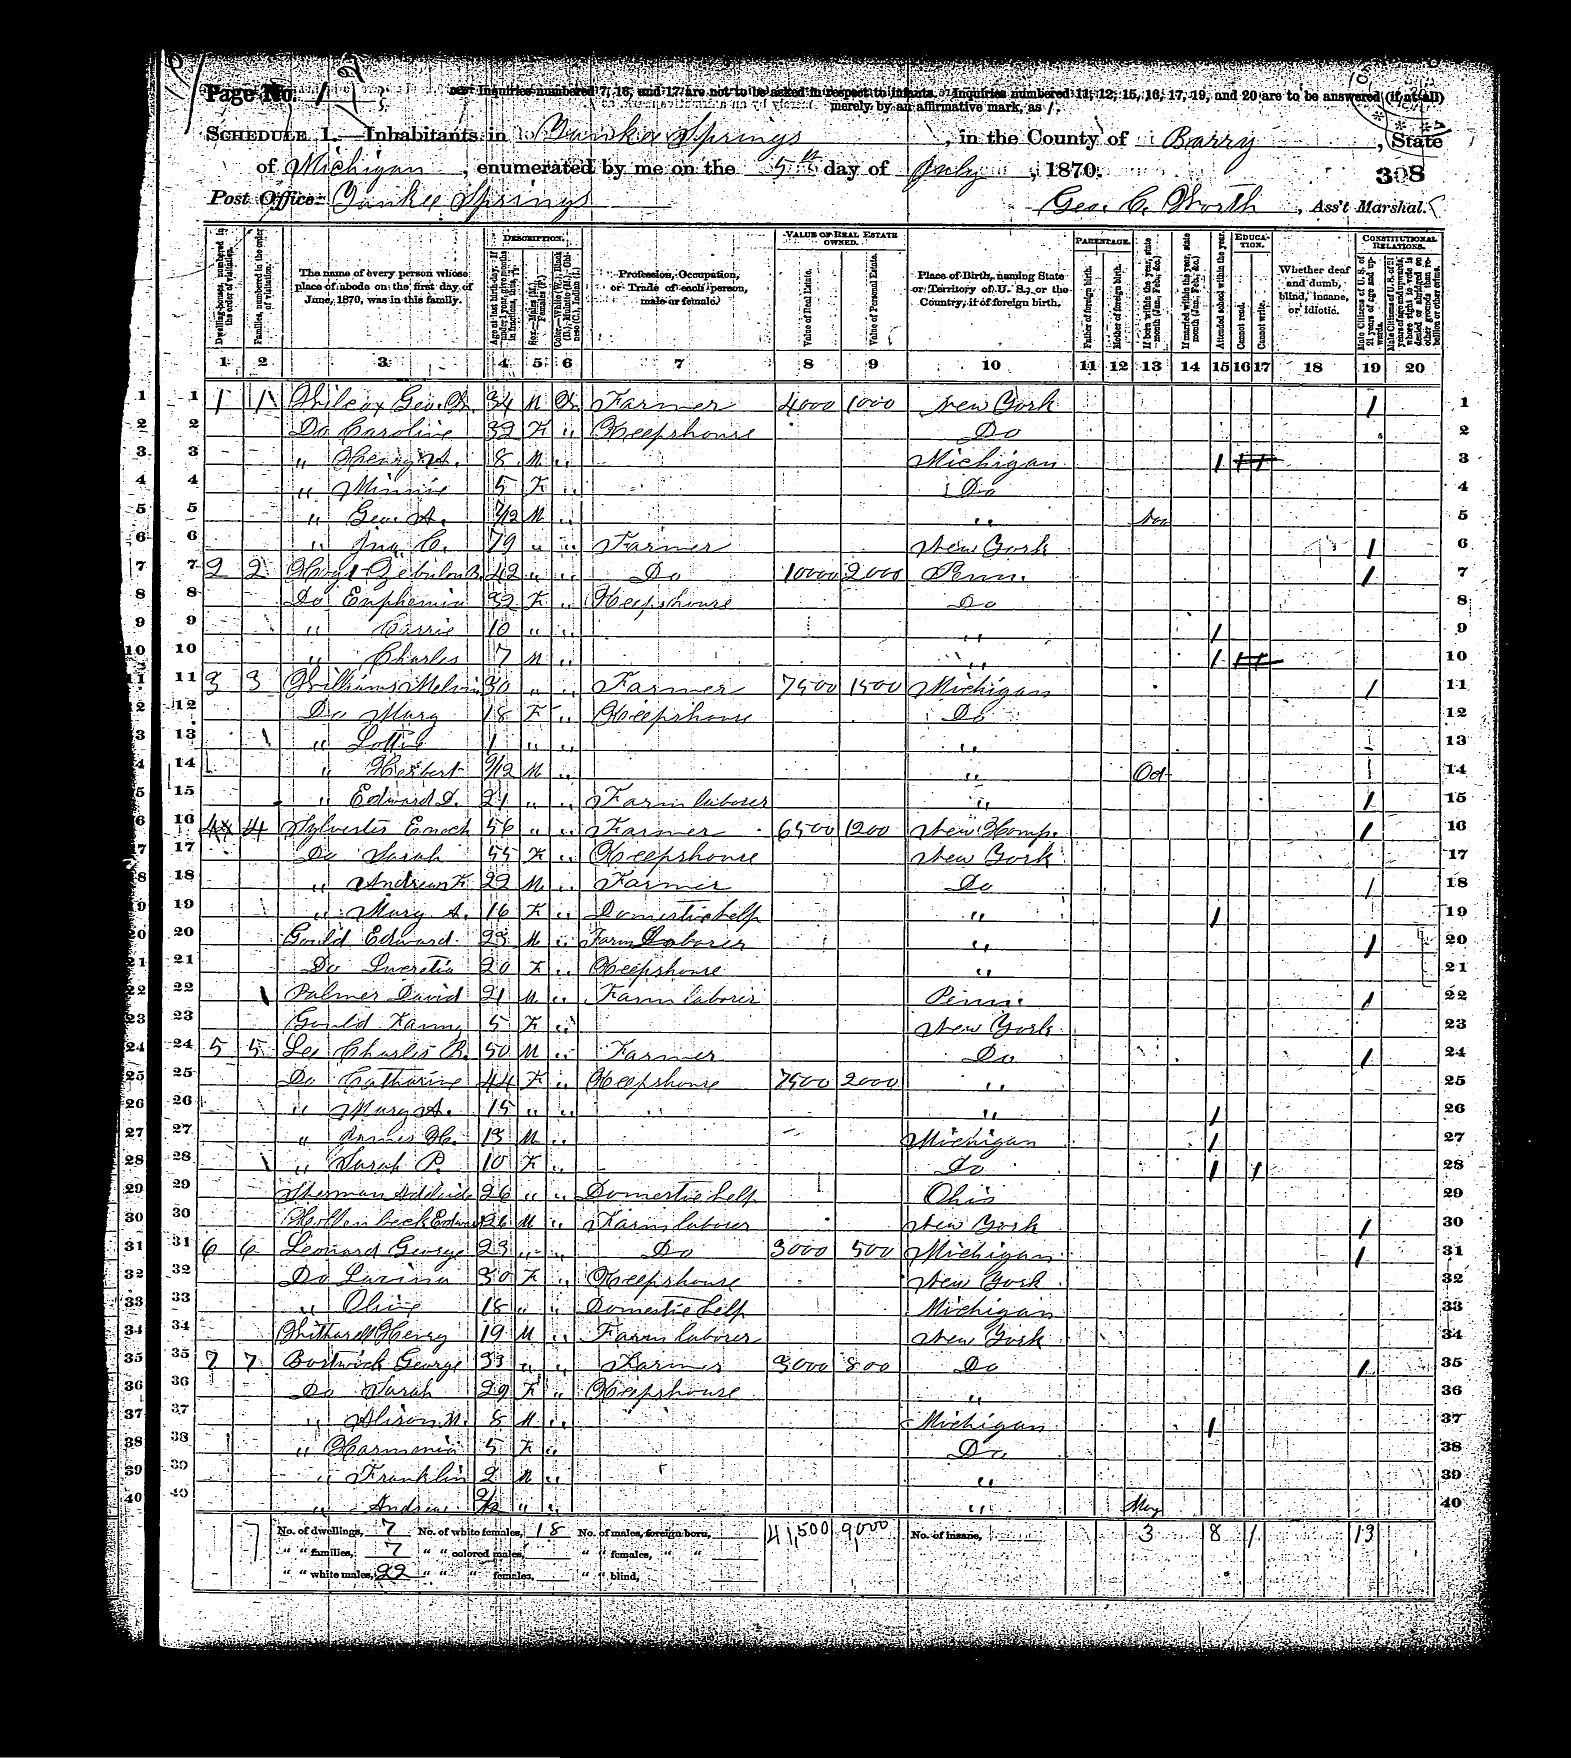 Page No. 1
Inquiries numbered 7, 16, and 17 are not to be asked in respect to infants. Inquiries numbered 11, 12, 15, 16, 17, 19, and 20 are to be answered (if at all)
merely by an affirmative mark, as /.
SCHEDULE 1.—Inhabitants in Yankee Springs, in the County of Barry, State
of Michigan, enumerated by me on the 5th day of July, 1870.
308
Post Office: Yankee Springs Geo. C. Worth, Ass't Marshal.
Dwelling-houses, numbered in the order of visitation.
Families, numbered in the order of visitation.
The name of every person whose place of abode on the first day of June, 1870, was in this family.
DESCRIPTION.
Age at last birth-day. If under 1 year, give months in fractions, thus, 3/12
Sex.—Males (M.), Females (F.)
Color.—White (W.), Black (B.), Mulatto (M.), Chinese (C.), Indian (I.)
Profession, Occupation, or Trade of each person, male or female.
VALUE OF REAL ESTATE OWNED.
Value of Real Estate.
Value of Personal Estate.
Place of Birth, naming State or Territory of U. S.; or the Country, if of foreign birth.
PARENTAGE.
Father of foreign birth.
Mother of foreign birth.
If born within the year, state month (Jan., Feb., &c.)
If married within the year, state month (Jan., Feb., &c.)
Attended school within the year.
EDUCATION.
Cannot read.
Cannot write.
Whether deaf and dumb, blind, insane, or idiotic.
CONSTITUTIONAL RELATIONS.
Male Citizens of U. S. of 21 years of age and upwards.
Male Citizens of U. S. of 21 years of age and upwards, where right to vote is denied or abridged on other grounds than rebellion or other crime.
1 2 3 4 5 6 7 8 9 10 11 12 13 14 15 16 17 18 19 20
1 1 1 Wilcox Geo. W. 34 M W Farmer 4000 1000 New York / 1
2 Do Caroline 32 F " Keepshouse Do 2
3 " Henry A. 8 M " Michigan / 3
4 " Minnie 5 F " Do 4
5 " Geo. A. 7/12 M " " Nov 5
6 " Jno. C. 79 " " Farmer New York / 6
7 2 2 Hoyt Zebulon B. 42 " " Do 10000 2000 Penn. / 7
8 Do Euphemia 32 F " Keepshouse Do 8
9 " Carrie 10 " " " / 9
10 " Charles 7 M " " / 10
11 3 3 Williams Melvin 30 " " Farmer 7500 1500 Michigan / 11
12 Do Mary 18 F " Keepshouse Do 12
13 " Lottie 1 " " " 13
14 " Herbert 9/12 M " " Oct 14
15 " Edward D. 21 " " Farm laborer " / 15
16 4 4 Sylvester Enoch 56 " " Farmer 6500 1200 New Hamp. / 16
17 Do Sarah 55 F " Keepshouse New York 17
18 " Andrew F. 22 M " Farmer Do / 18
19 " Mary A. 16 F " Domestic help " / 19
20 Gould Edward 23 M " Farm Laborer " / 20
21 Do Lucretia 20 F " Keepshouse " 21
22 Palmer David 21 M " Farm laborer Penn. / 22
23 Gould Fanny 5 F " New York 23
24 5 5 Lee Charles B. 50 M " Farmer Do / 24
25 Do Catharine 44 F " Keepshouse 7500 2000 " 25
26 " Mary A. 15 " " " / 26
27 " James H. 13 M " Michigan / 27
28 " Sarah P. 10 F " Do / / 28
29 Sherman Adelaide 26 " " Domestic help Ohio 29
30 Hollenbeck Edward 26 M " Farm laborer New York / 30
31 6 6 Leonard George 23 " " Do 3000 500 Michigan / 31
32 Do Lavina 30 F " Keepshouse New York 32
33 " Olive 18 " " Domestic help Michigan 33
34 Henry 19 M " Farm laborer New York 34
35 7 7 Bostwick George 33 " " Farmer 3000 800 Do / 35
36 Do Sarah 29 F " Keepshouse " 36
37 " Alison 8 M " Michigan / 37
38 " Harmonia 5 F " Do 38
39 " Franklin 2 M " " 39
40 " Andrew 2/12 " " " May 40
7 No. of dwellings, 7 No. of white females, 18 No. of males, foreign born, 41,500 9000 No. of insane, 3 8 1 13
" " families, 7 " " colored males, " " females, " "
" " white males, 22 " " " females, " " blind,